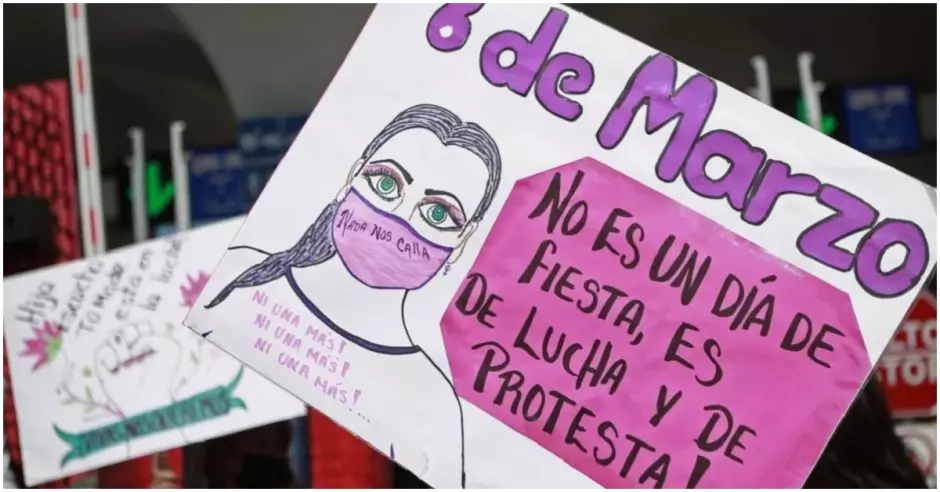 8 de Marzo
NO ES UN DÍA DE
FIESTA, ES
DE LUCHA Y DE
PROTESTA!
NADA NOS CALLA
NI UNA MÁS!
NI UNA MÁS!
NI UNA MÁS!...
Hija
esta en
la lucha
LTO
TOP